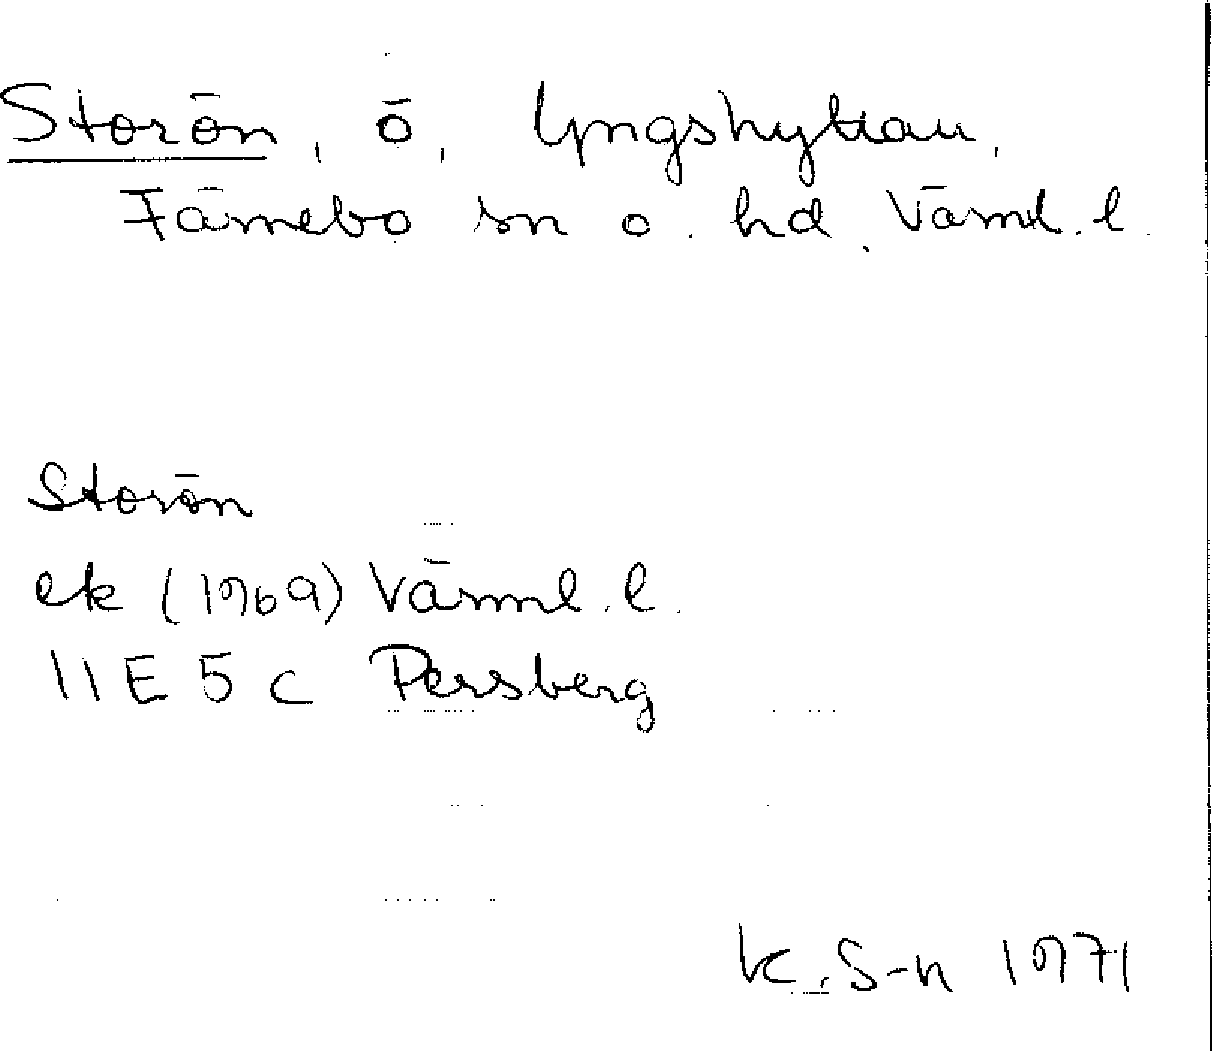 Storön, ö, Lyngshyttan,
Färnebo sn o. hd. Värml. l.
Storön
ek (1969) Värml. l.
11E 5c Persberg
K. S-n 1971